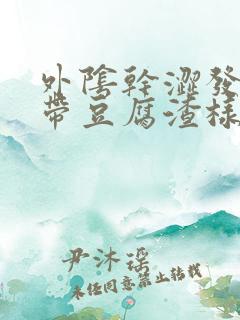 外陰幹澀發
帶豆腐渣樣
尹沐瑶
未经同意禁止转载